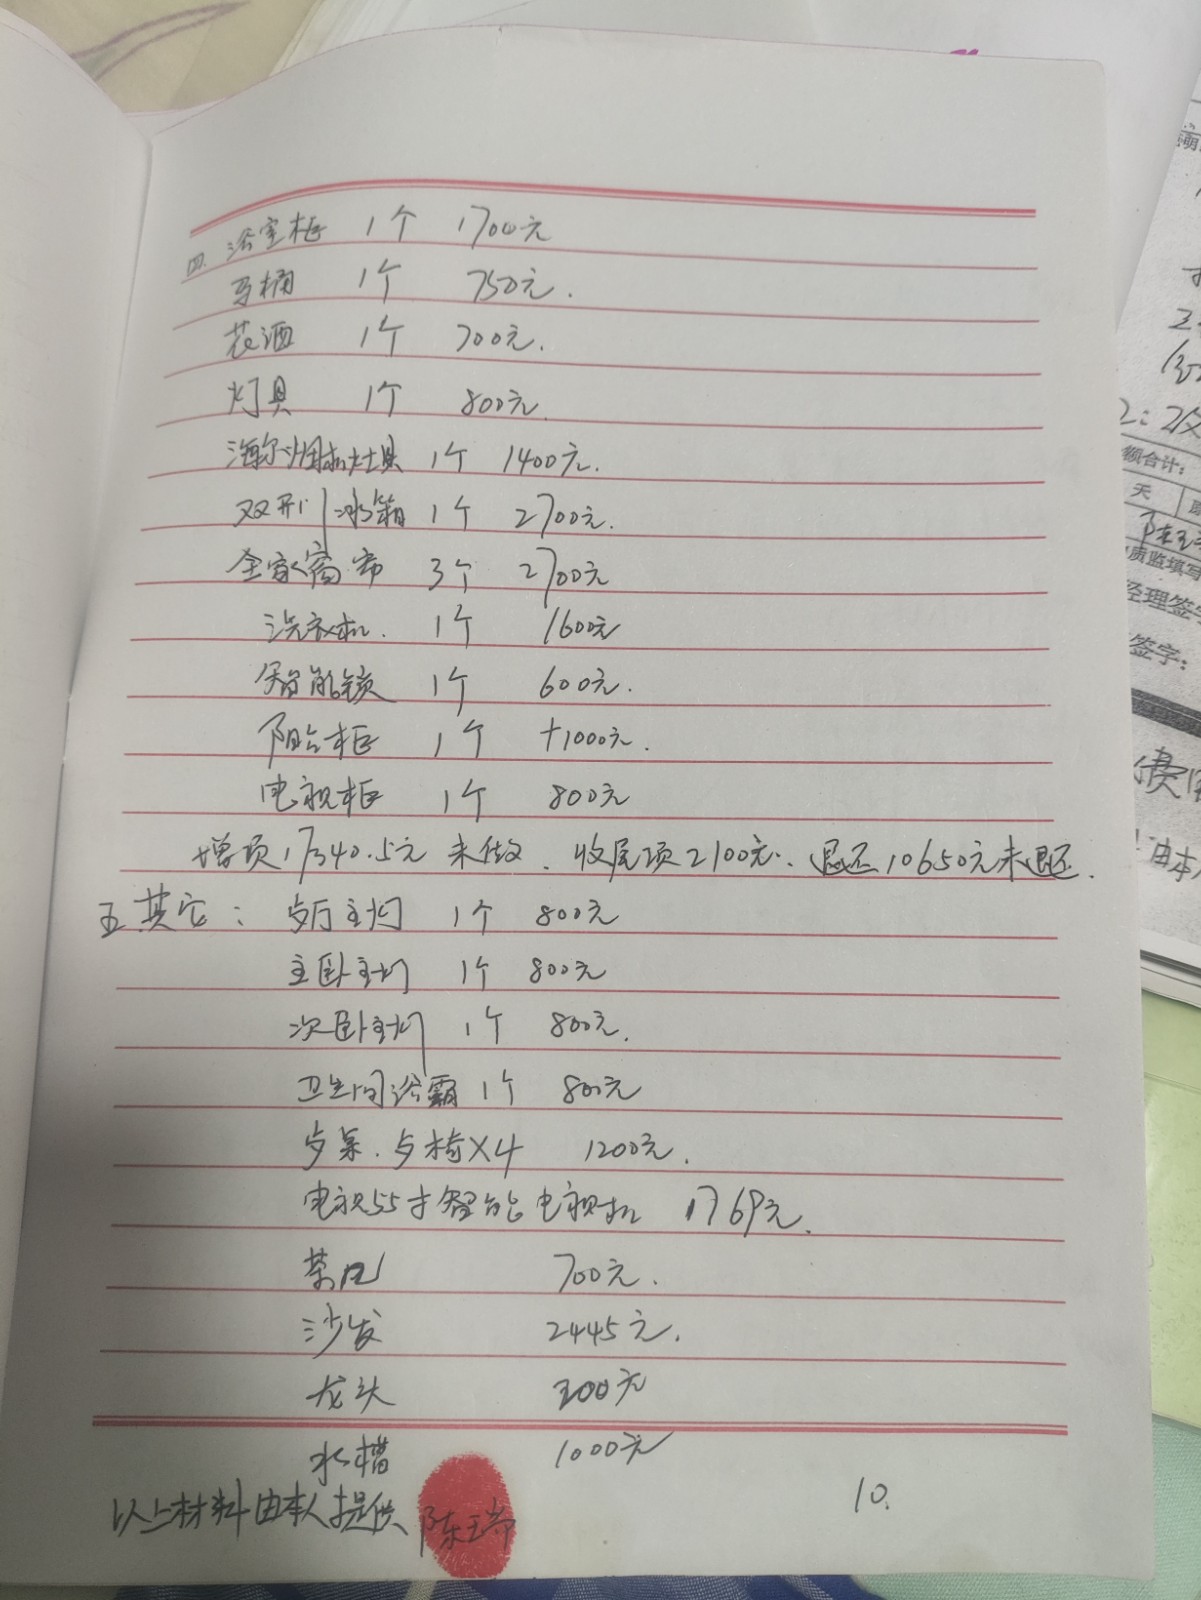 四. 浴室柜 1个 1700元
马桶 1个 750元.
花洒 1个 700元.
灯具 1个 800元.
海尔烟机灶具 1个 1400元.
双开门冰箱 1个 2700元.
全家窗帘 3个 2700元
洗衣机. 1个 1600元
智能锁 1个 600元.
阳台柜 1个 +1000元.
电视柜 1个 800元
增项17340.5元 未做. 收尾项2100元. 退还10650元未退还.
五其它: 歺厅主灯 1个 800元
主卧主灯 1个 800元
次卧主灯 1个 800元.
卫生间浴霸 1个 800元
歺桌. 歺椅X4 1200元.
电视55寸智能电视机 1769元.
茶几 700元.
沙发 2445元.
龙头 300元
水槽 1000元
以上材料由本人提供 陈瑞
10.
额合计:
天
质监填写
经理签字
签字:
由本人